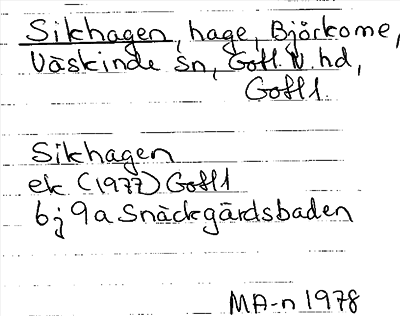 Sikhagen, hage, Björkome,
Väskinde sn, Gotl. N. hd,
Gotl l.
Sikhagen
ek (1977) Gotl l
6j 9a Snäckgärdsbaden
MA-n 1978